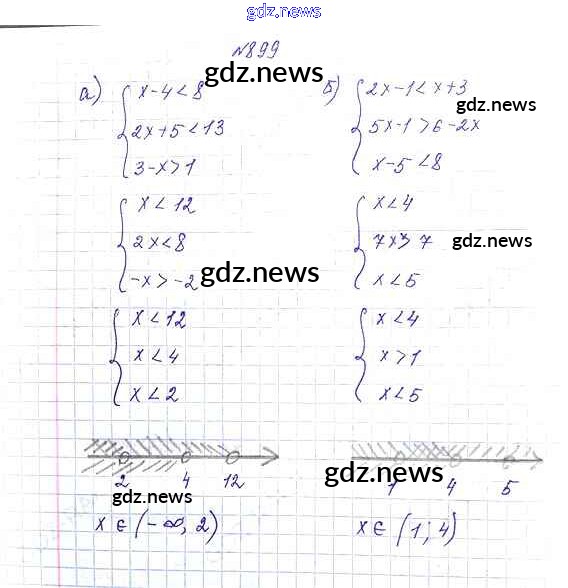 gdz.news
№899
gdz.news
а) x-4<8
2x+5<13
3-x>1
x<12
2x<8
-x>-2
gdz.news
x<12
x<4
x<2
2 4 12
gdz.news
x ∈ (-∞, 2)
Б) 2x-1<x+3
gdz.news
5x-1>6-2x
x-5<8
x<4
7x>7
gdz.news
x<5
x<4
x>1
x<5
gdz.news
1 4 5
x ∈ (1; 4)